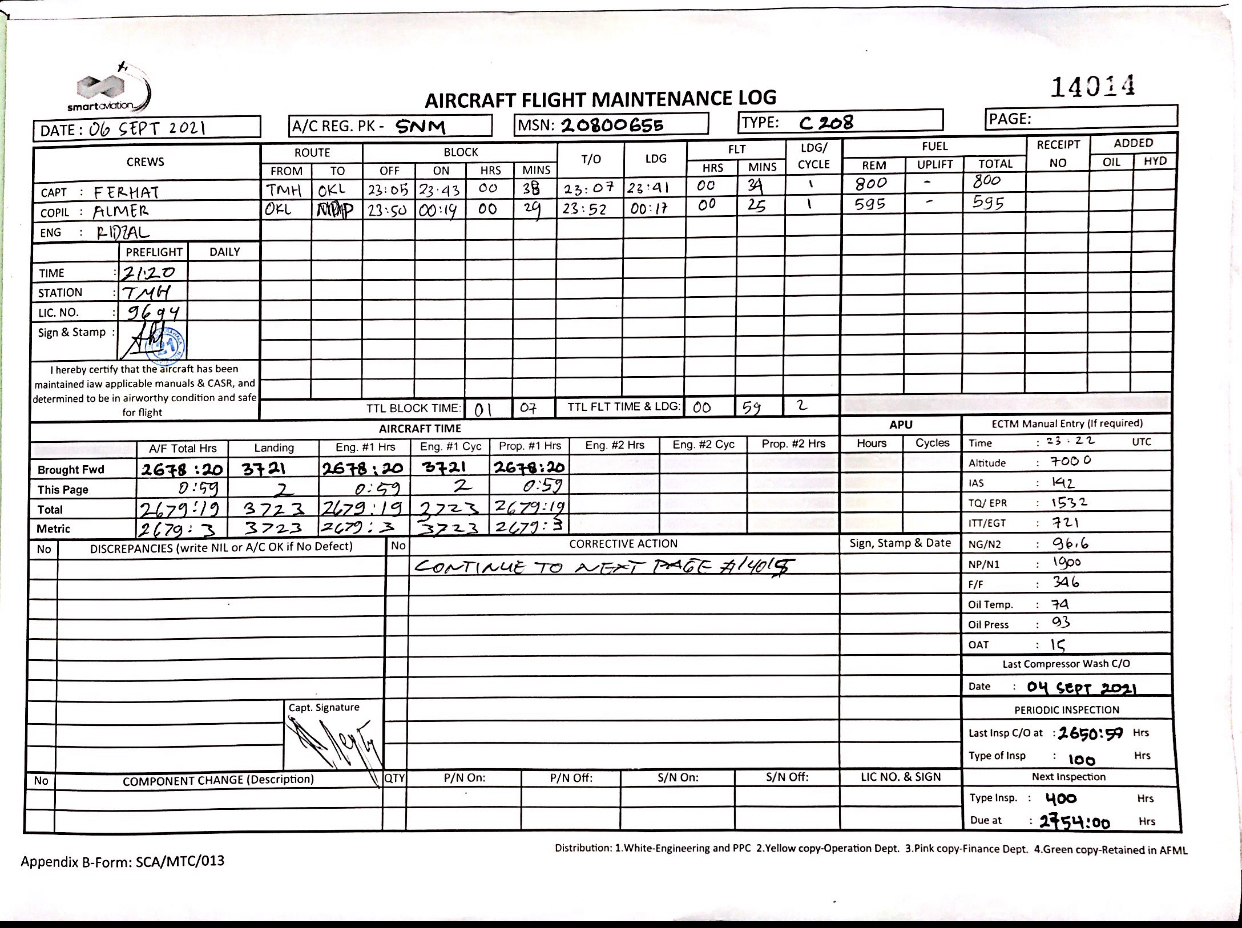 smartaviation
14014
AIRCRAFT FLIGHT MAINTENANCE LOG
DATE : 06 SEPT 2021 A/C REG. PK - SNM MSN: 20800655 TYPE: C 208 PAGE:
CREWS ROUTE BLOCK T/O LDG FLT LDG/ CYCLE FUEL RECEIPT NO ADDED
FROM TO OFF ON HRS MINS HRS MINS REM UPLIFT TOTAL OIL HYD
CAPT : FERHAT TMH OKL 23:05 23:43 00 38 23:07 23:41 00 34 1 800 - 800
COPIL : ALMER OKL 23:50 00:19 00 29 23:52 00:17 00 25 1 595 - 595
ENG : RIDZAL
PREFLIGHT DAILY
TIME : 21:20
STATION : TMH
LIC. NO. : 9694
Sign & Stamp :
I hereby certify that the aircraft has been
maintained iaw applicable manuals & CASR, and
determined to be in airworthy condition and safe
for flight
TTL BLOCK TIME: 01 07 TTL FLT TIME & LDG: 00 59 2
AIRCRAFT TIME APU ECTM Manual Entry (If required)
A/F Total Hrs Landing Eng. #1 Hrs Eng. #1 Cyc Prop. #1 Hrs Eng. #2 Hrs Eng. #2 Cyc Prop. #2 Hrs Hours Cycles Time : 23:22 UTC
Brought Fwd 2678:20 3721 2678:20 3721 2678:20 Altitude : 7000
This Page 0:59 2 0:59 2 0:59 IAS : 142
Total 2679:19 3723 2679:19 3723 2679:19 TQ/ EPR : 1532
Metric 2679:3 3723 2679:3 3723 2679:3 ITT/EGT : 721
No DISCREPANCIES (write NIL or A/C OK if No Defect) No CORRECTIVE ACTION Sign, Stamp & Date NG/N2 : 96.6
CONTINUE TO NEXT PAGE #14015 NP/N1 : 1900
F/F : 346
Oil Temp. : 74
Oil Press : 93
OAT : 15
Last Compressor Wash C/O
Date : 04 SEPT 2021
Capt. Signature
PERIODIC INSPECTION
Last Insp C/O at : 2650:59 Hrs
Type of Insp : 100 Hrs
No COMPONENT CHANGE (Description) QTY P/N On: P/N Off: S/N On: S/N Off: LIC NO. & SIGN Next Inspection
Type Insp. : 400 Hrs
Due at : 2754:00 Hrs
Distribution: 1.White-Engineering and PPC 2.Yellow copy-Operation Dept. 3.Pink copy-Finance Dept. 4.Green copy-Retained in AFML
Appendix B-Form: SCA/MTC/013